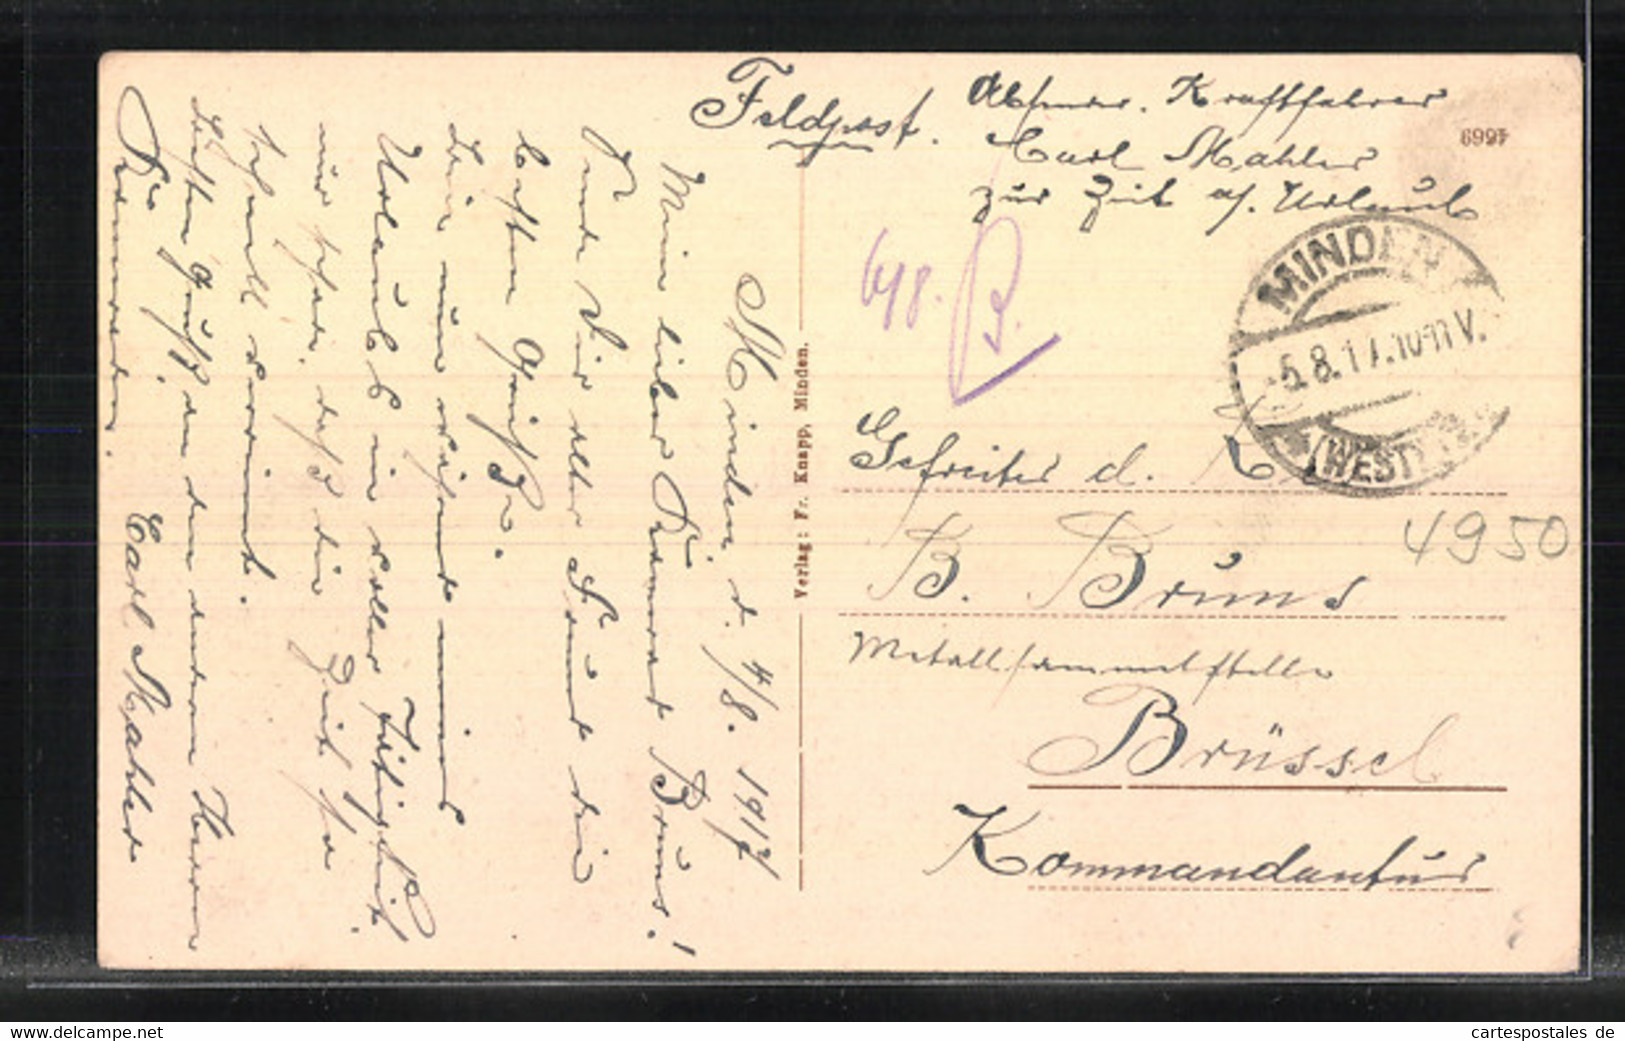 Feldpost.
Absender. Kraftfahrer
Carl Mahler
zur Zeit a/. Urlaub
6997
MINDEN
-5.8.17.10-11V.
(WESTF.)
6/8.
Gefreiter d. L.
B. Bruns
Metallsammelstelle
Brüssel
Kommandantur
4950
Verlag: Fr. Knapp, Minden.
Minden, d. 4/8. 1917
Mein lieber Kamerad Bruns!
Sende Dir aller Freund die
besten Grüße.
Bin nun
Urlaub in voller Tätigkeit
nur schade, daß die Zeit so
schnell verrinnt.
Besten Gruß an den andern Herrn
Kameraden.
Carl Mahler
cartespostales de
www.delcampe.net